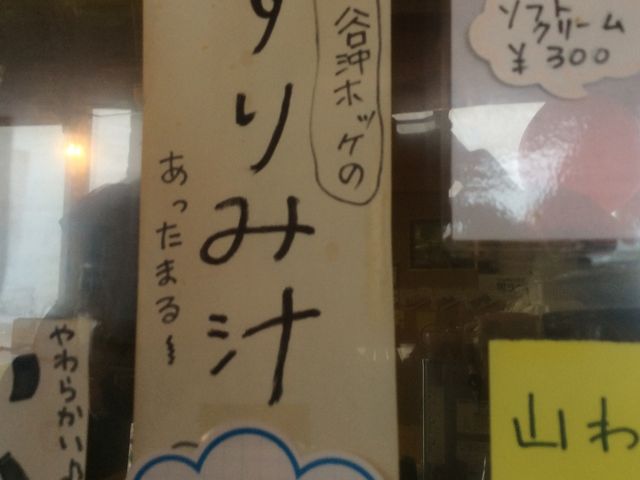 ソフト
クリーム
¥300
谷沖ホッケの
すりみ汁
あったまる〜
やわらかい♪
山わ